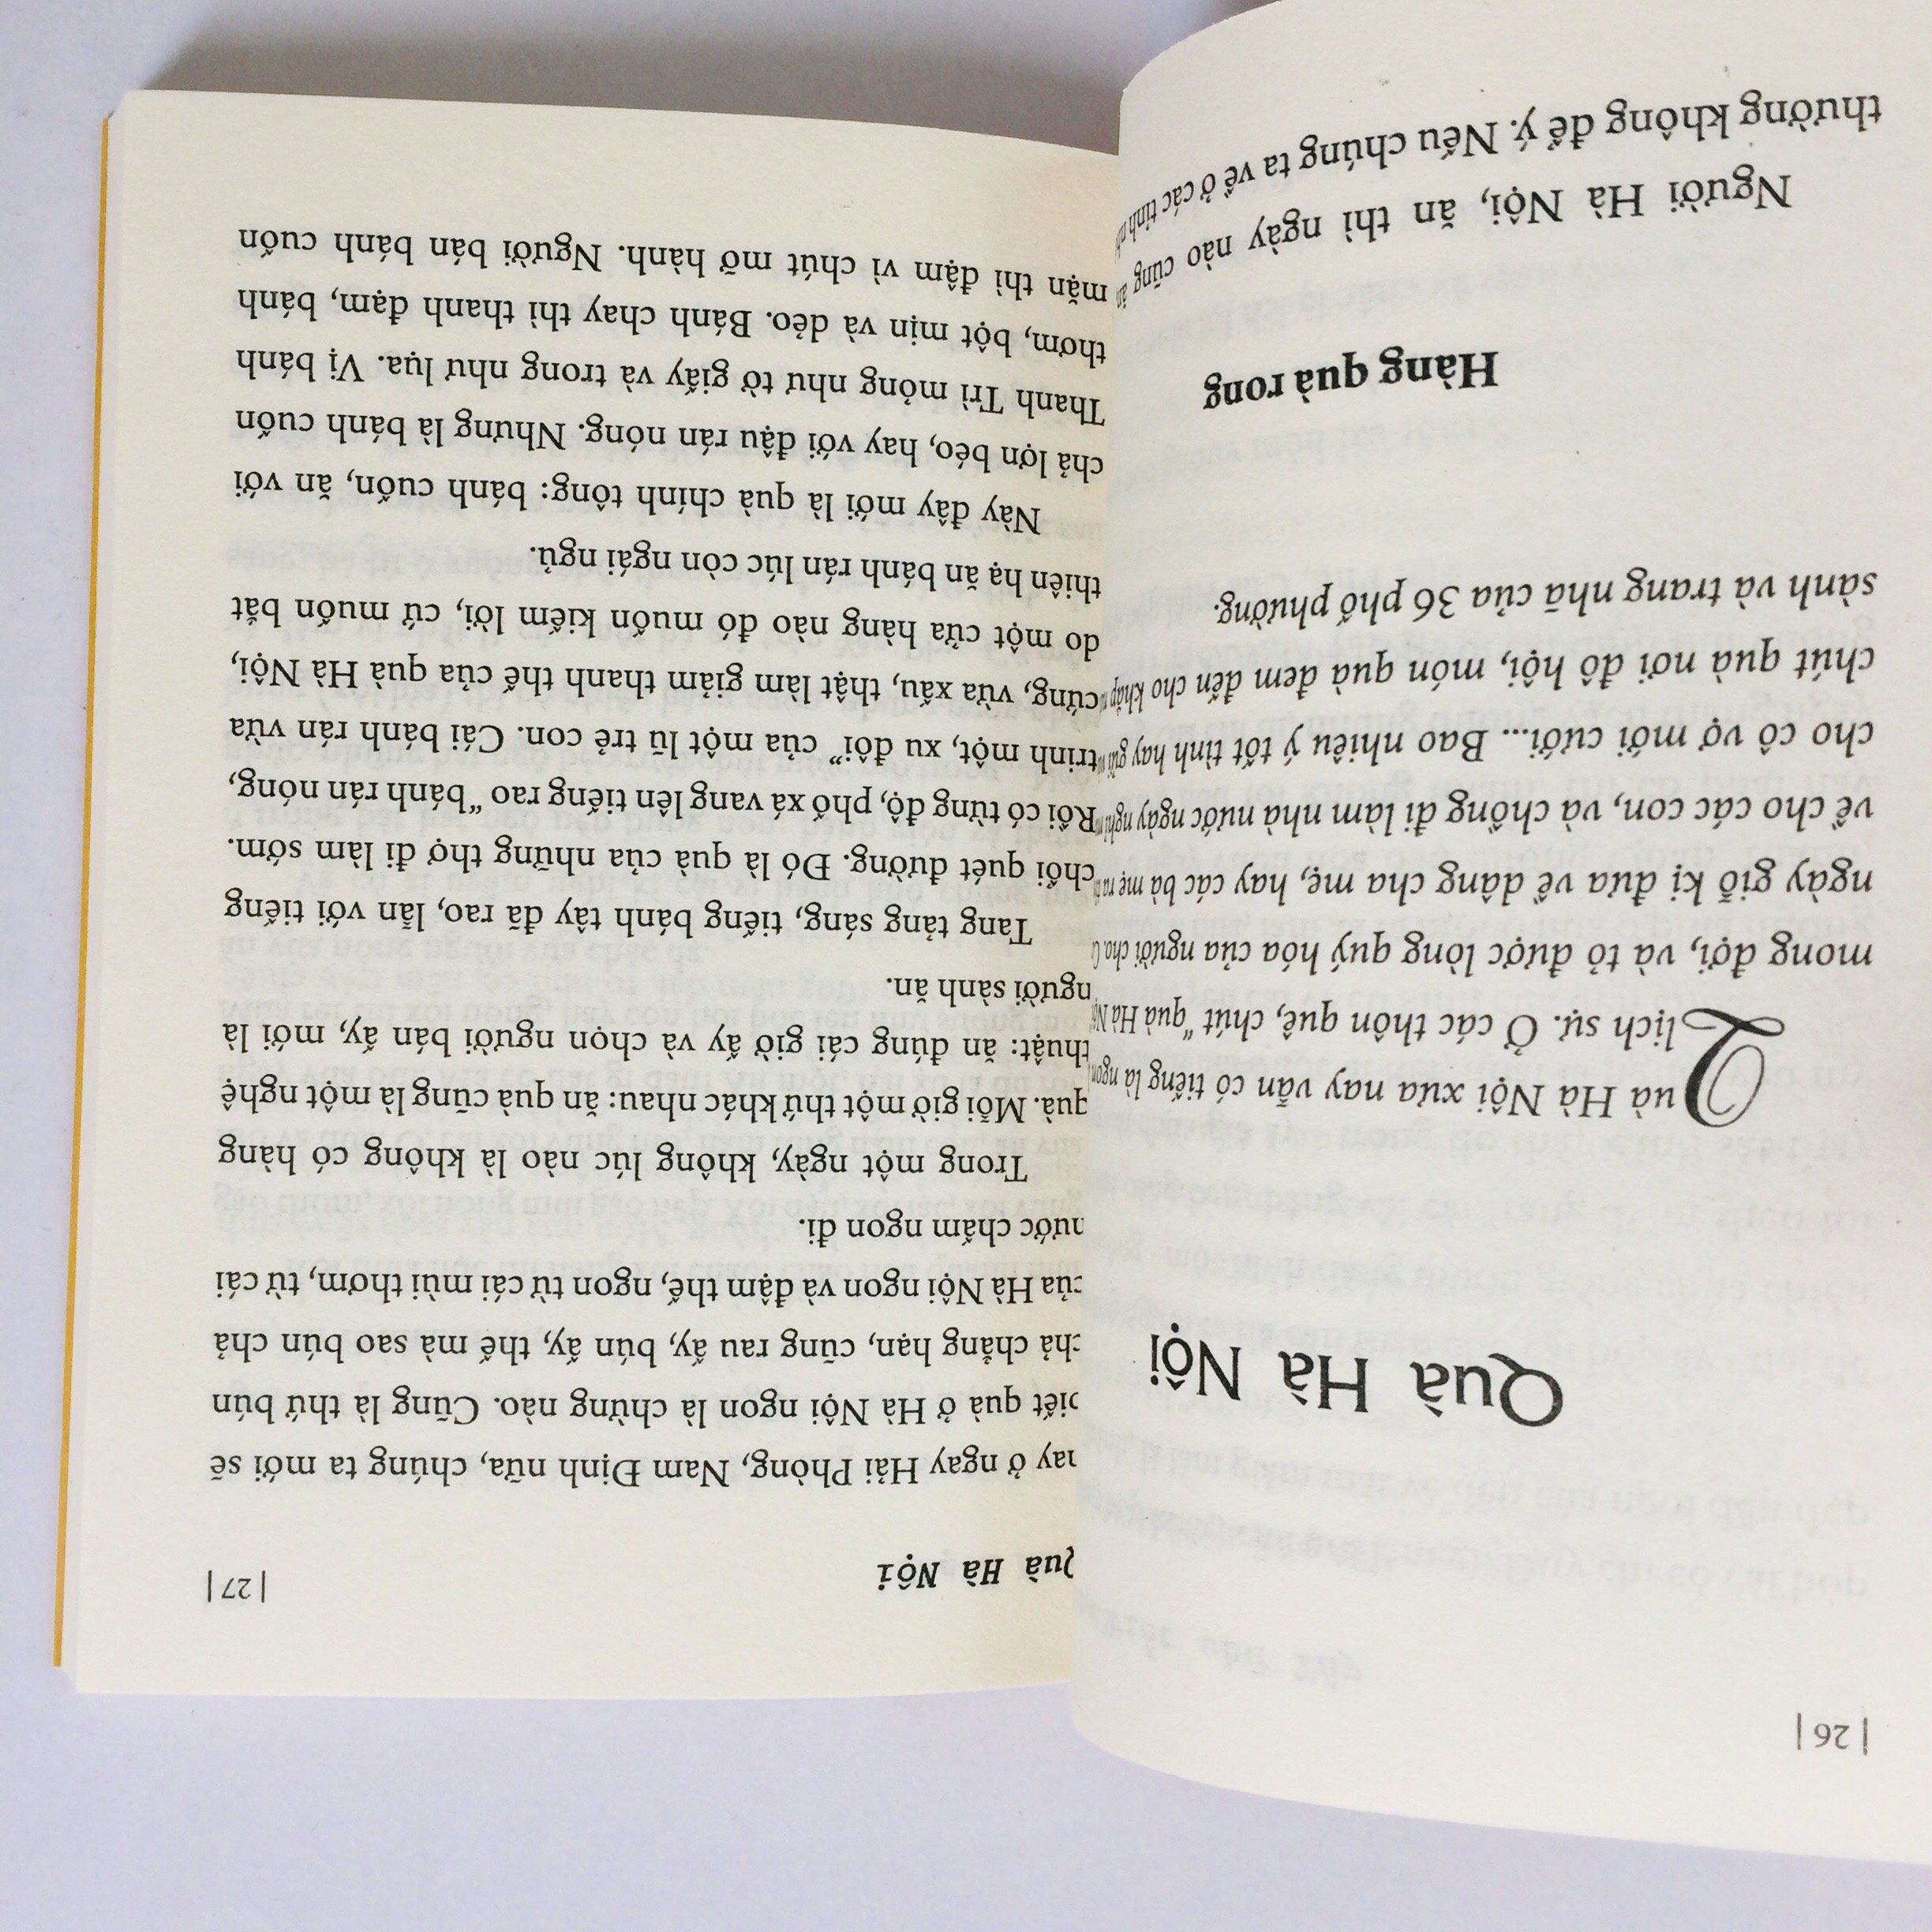 | 26 |
Quà Hà Nội
Quà Hà Nội xưa nay vẫn có tiếng là ngon
lịch sự. Ở các thôn quê, chút "quà Hà Nội
mong đợi, và tỏ được lòng quý hóa của người cho.
ngày giỗ kị đưa về dâng cha mẹ, hay các bà mẹ
về cho các con, và chồng đi làm nhà nước ngày nghỉ
cho cô vợ mới cưới... Bao nhiêu ý tốt tình hay
chút quà nơi đô hội, món quà đem đến cho khắp
sành và trang nhã của 36 phố phường.
Hàng quà rong
Người Hà Nội, ăn thì ngày nào cũng
thường không để ý. Nếu chúng ta về ở các tỉnh
Quà Hà Nội
| 27 |
hay ở ngay Hải Phòng, Nam Định nữa, chúng ta mới sẽ
biết quà ở Hà Nội ngon là chừng nào. Cũng là thứ bún
chả chẳng hạn, cũng rau ấy, bún ấy, thế mà sao bún chả
của Hà Nội ngon và đậm thế, ngon từ cái mùi thơm, từ cái
nước chấm ngon đi.
Trong một ngày, không lúc nào là không có hàng
quà. Mỗi giờ một thứ khác nhau: ăn quà cũng là một nghệ
thuật: ăn đúng cái giờ ấy và chọn người bán ấy, mới là
người sành ăn.
Tang tảng sáng, tiếng bánh tây đã rao, lẫn với tiếng
chổi quét đường. Đó là quà của những thợ đi làm sớm.
Rồi có từng độ, phố xá vang lên tiếng rao "bánh rán nóng,
trinh một, xu đôi" của một lũ trẻ con. Cái bánh rán vừa
cứng, vừa xấu, thật làm giảm thanh thế của quà Hà Nội,
do một cửa hàng nào đó muốn kiếm lời, cứ muốn bắt
thiên hạ ăn bánh rán lúc còn ngái ngủ.
Này đây mới là quà chính tông: bánh cuốn, ăn với
chả lợn béo, hay với đậu rán nóng. Nhưng là bánh cuốn
Thanh Trì mỏng như tờ giấy và trong như lụa. Vị bánh
thơm, bột mịn và dẻo. Bánh chay thì thanh đạm, bánh
mặn thì đậm vì chút mỡ hành. Người bán bánh cuốn